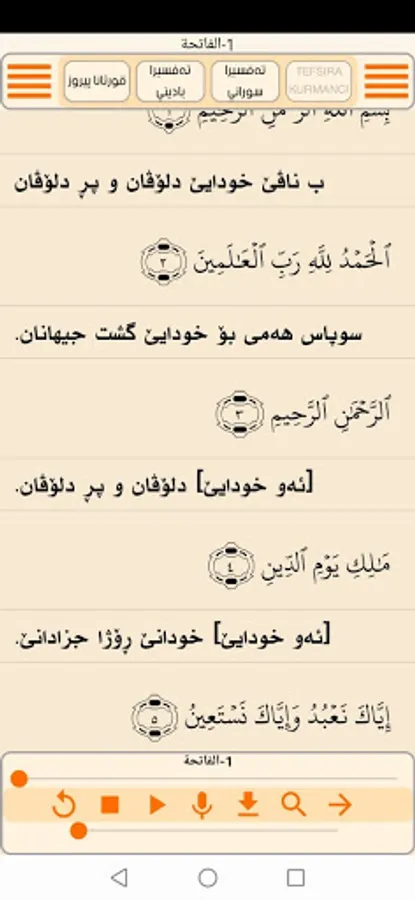 1-الفاتحة
قورئانا پیروز
تەفسیرا بادینی
تەفسیرا سورانی
TEFSIRA KURMANCI
بِسْمِ ٱللَّهِ ٱلرَّحْمَٰنِ ٱلرَّحِيمِ ١
ب ناڤێ خودایێ دلۆڤان و پڕ دلۆڤان
ٱلْحَمْدُ لِلَّهِ رَبِّ ٱلْعَٰلَمِينَ ٢
سوپاس هەمی بۆ خودایێ گشت جیهانان.
ٱلرَّحْمَٰنِ ٱلرَّحِيمِ ٣
[ئەو خودایێ] دلۆڤان و پڕ دلۆڤان.
مَٰلِكِ يَوْمِ ٱلدِّينِ ٤
[ئەو خودایێ] خودانێ ڕۆژا جزادانێ.
إِيَّاكَ نَعْبُدُ وَإِيَّاكَ نَسْتَعِينُ ٥
1-الفاتحة